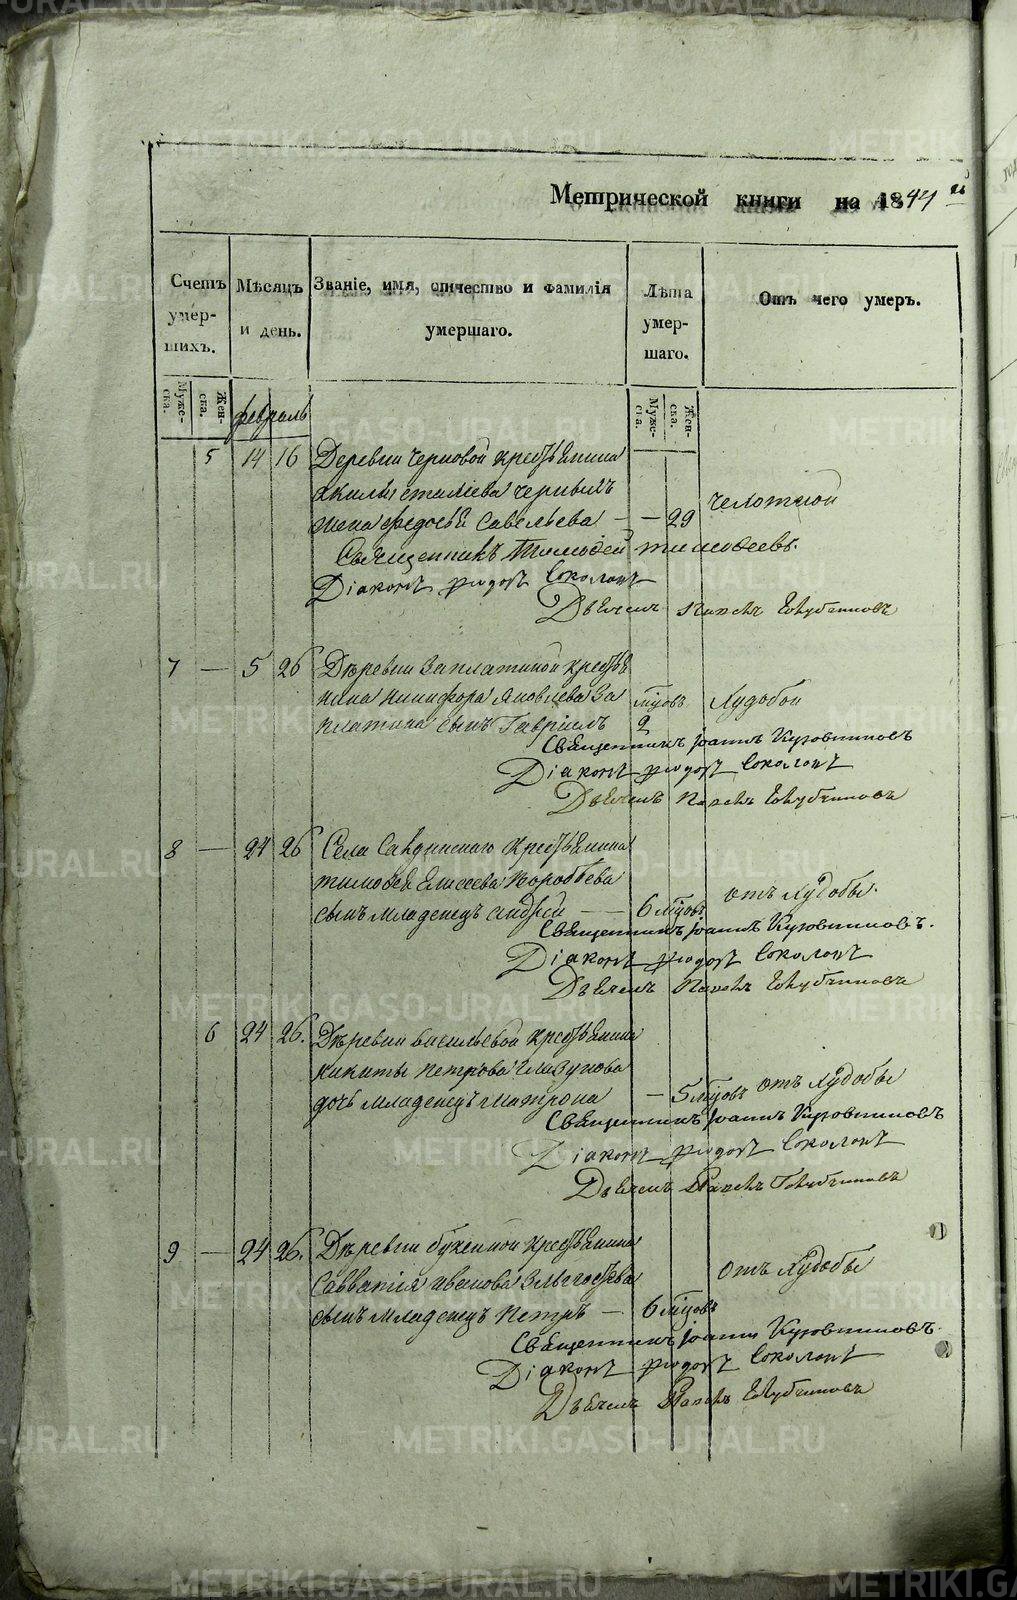 Метрической книги на 1844 й
Счетъ умер- шихъ.
Мѣсяцъ и день.
Званіе, имя, отчество и фамилія умершаго.
Лѣта умер- шаго.
Отъ чего умеръ.
Муже- ска.
Жен- ска.
Муже- ска.
Жен- ска.
февраль
5 14 16 Деревни Черновой крестьянина
Акилы Черныхъ
жена Федосья Савельева — — 29 чехоткой
Священникъ Тимофей Тимофеевъ.
Діаконъ Федоръ Соколовъ
Дьячекъ Павелъ
7 — 5 26 Деревни Заплатиной крестья
нина Никифора Яковлева За
платина сынъ Гавріилъ 2 мцовъ Худобой
Священникъ Іоаннъ Кузовниковъ
Діаконъ Федоръ Соколовъ
Дьячекъ Павелъ
8 — 24 26 Села крестьянина
Тимофея Елисеева Воробьева
сынъ младенецъ Андрей — 6 мцовъ отъ Худобы.
Священникъ Іоаннъ Кузовниковъ.
Діаконъ Федоръ Соколовъ
Дьячекъ Павелъ
6 24 26. Деревни Васильевой крестьянина
Никиты Петрова Глазунова
дочь младенецъ Матрона — 5 мцовъ отъ Худобы
Священникъ Іоаннъ Кузовниковъ
Діаконъ Федоръ Соколовъ
Дьячекъ Павелъ
9 — 24 26. Деревни крестьянина
Савватія Иванова
сынъ младенецъ Петръ — 6 мцовъ отъ Худобы
Священникъ Іоаннъ Кузовниковъ.
Діаконъ Федоръ Соколовъ
Дьячекъ Павелъ
METRIKI.GASO-URAL.RU